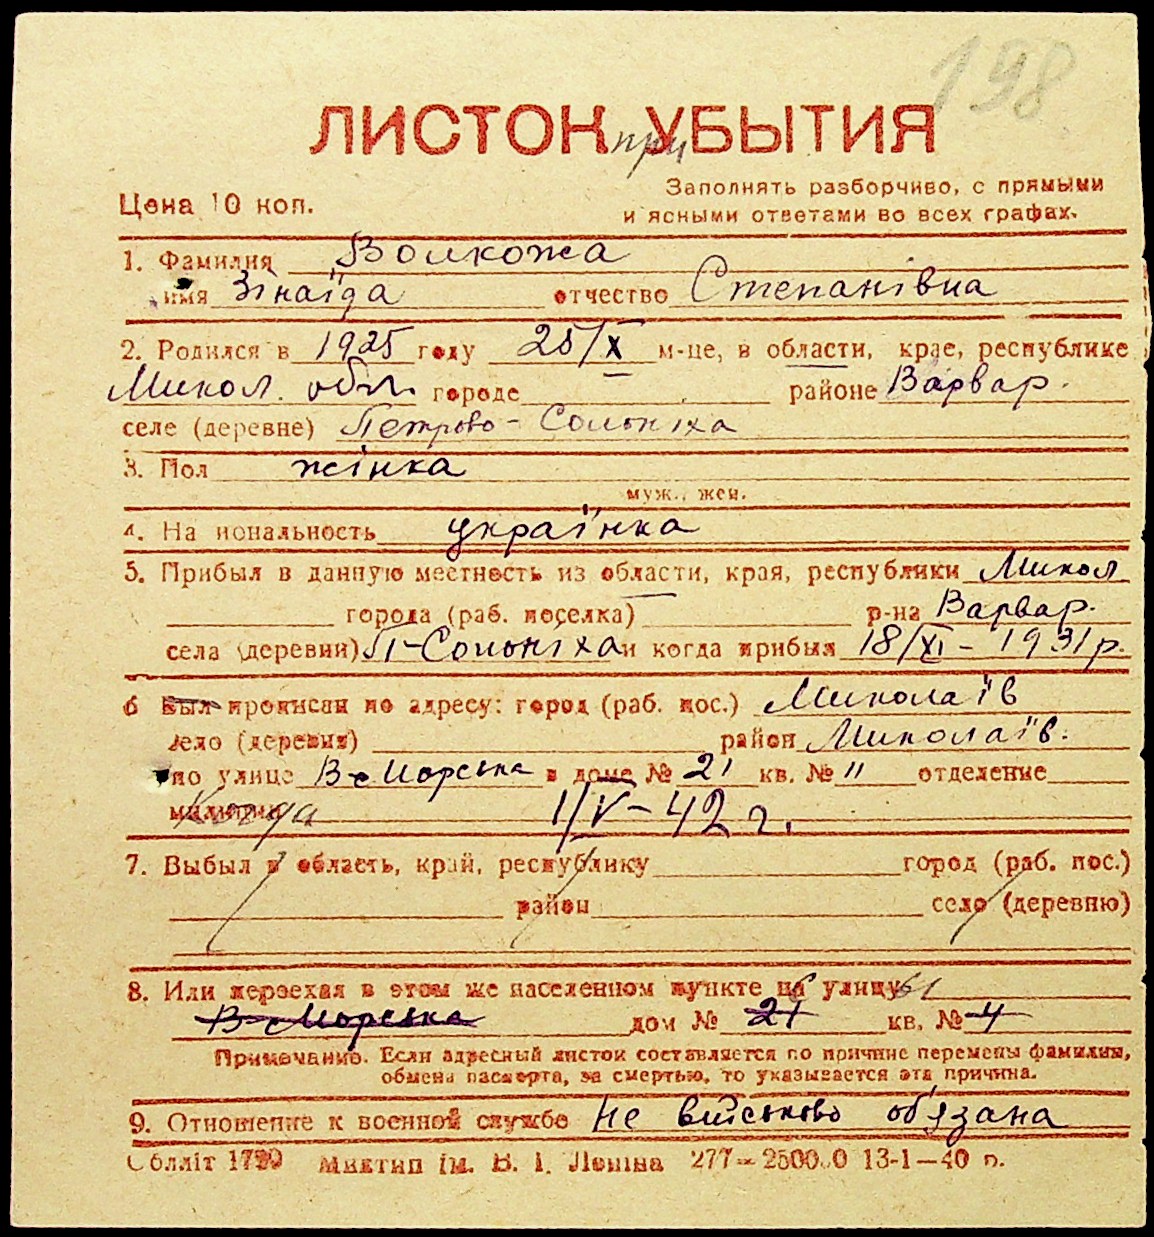 198
ЛИСТОК при УБЫТИЯ
Цена 10 коп.
Заполнять разборчиво, с прямыми
и ясными ответами во всех графах.
1. Фамилия Волкожа
имя Зінаїда отчество Степанівна
2. Родился в 1925 году 25/X м-це, в области, крае, республике
Микол. обл. городе районе Варвар.
селе (деревне) Петрово-Солоніха
3. Пол жінка
муж., жен.
4. На иональность українка
5. Прибыл в данную местность из области, края, республики Микол
города (раб. поселка) р-на Варвар.
села (деревни) П-Солоніха и когда прибыл 18/XI - 1931 р.
6 Был прописан по адресу: город (раб. пос.) Миколаїв
село (деревня) район Миколаїв.
по улице В-Морська в доме № 21 кв. № 11 отделение
милиции Когда 1/V - 42 г.
7. Выбыл в область, край, республику город (раб. пос.)
район село (деревню)
8. Или переехал в этом же населенном пункте на улицу
В-Морська дом № 21 кв. № 4
Примечание. Если адресный листок составляется по причине перемены фамилии,
обмена паспорта, за смертью, то указывается эта причина.
9. Отношение к военной службе Не військово об'язана
Облліт 1790 Миктип ім. В. І. Леніна 277-250000 13-1-40 р.